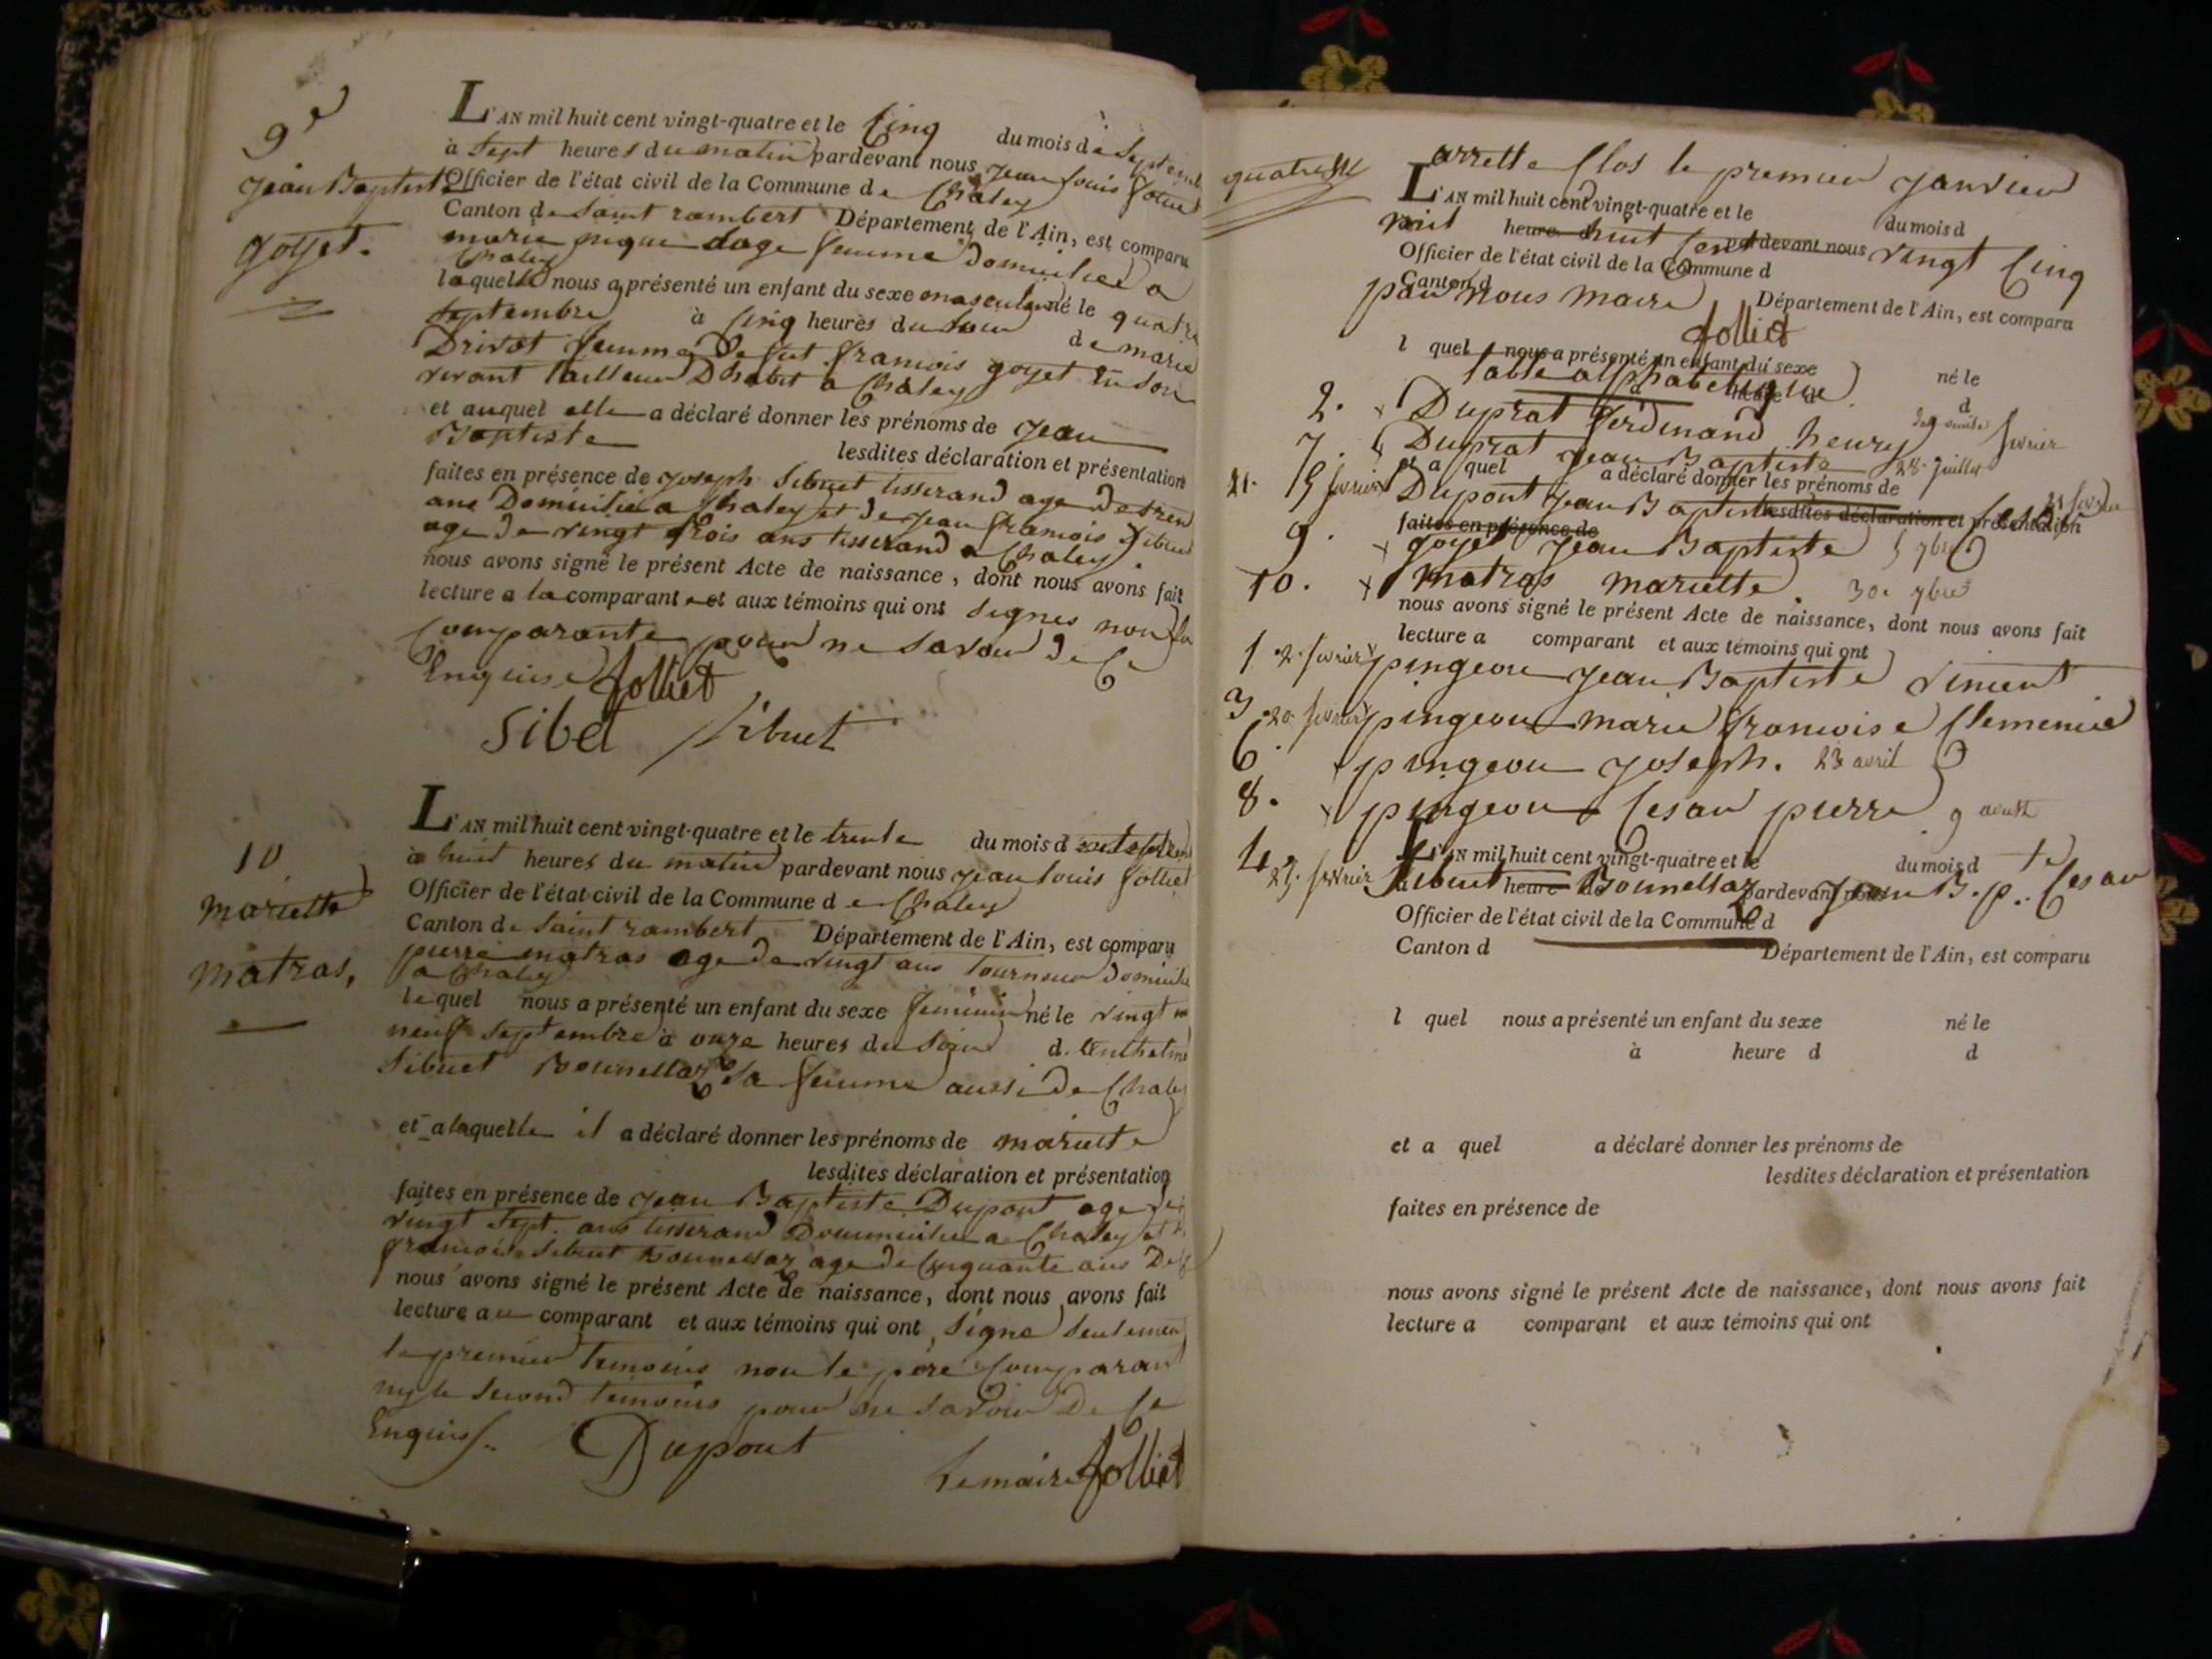 9e
Jean Baptiste
goyet.
L'AN mil huit cent vingt-quatre et le Cinq du mois de Septemb
à Sept heures du matin pardevant nous Jean Louis Jolliet
Officier de l'état civil de la Commune de Chaley
Canton de Saint rambert Département de l'Ain, est comparu
marie sage femme domiciliee a
Chaley
laquelle nous a présenté un enfant du sexe masculin né le quatre
Septembre à Cinq heures du soir de marie
Drivet femme de feut francois goyet En son
vivant tailleur D'habit a Chaley
et auquel elle a déclaré donner les prénoms de Jean
Baptiste lesdites déclaration et présentation
faites en présence de Joseph Sibuet tisserand age de tren
ans Domicilié a Chaley et de Jean francois Sibuet
age de vingt trois ans tisserand a Chaley.
nous avons signé le présent Acte de naissance, dont nous avons fait
lecture a la comparante et aux témoins qui ont Signes non la
Comparante pour ne savoir de Ce
Enquise Jolliet
Sibet Sibuet
10
mariette
matras,
L'AN mil huit cent vingt-quatre et le trente du mois d
à huit heures du matin pardevant nous Jean Louis Jolliet
Officier de l'état civil de la Commune de Chaley
Canton de Saint rambert Département de l'Ain, est comparu
pierre matras age de vingt ans tourneur domicilie
a Chaley
lequel nous a présenté un enfant du sexe feminin né le vingt
neuf Septembre à onze heures du Soir d. Enthelme
Sibuet Bounellaz Sa femme aussi de Chaley
et a laquelle il a déclaré donner les prénoms de mariette
lesdites déclaration et présentation
faites en présence de Jean Baptiste Dupont age de
vingt Sept ans tisserand Domicilie a Chaley et
francois Sibuet Bounellaz age de Cinquante ans De
nous avons signé le présent Acte de naissance, dont nous avons fait
lecture au comparant et aux témoins qui ont Signé Seulemen
le premier temoins non le père Comparant
ny le Second temoins pour ne savoir De Ce
Enquis Dupont
Le maire Jolliet
arrette Clos le premier Janvier
L'AN mil huit cent vingt-quatre et le du mois d
mil heure huit Cent pardevant nous vingt Cinq
Officier de l'état civil de la Commune d
Canton d
par nous maire Département de l'Ain, est comparu
Jolliet
l quel nous a présenté un enfant du sexe né le
table alphabetique
à heure d d
2. Duprat ferdinand henry février
7. Duprat Jean Baptiste 28 juillet
et a quel a déclaré donner les prénoms de
5 février Dupont Jean Baptiste Cesar
lesdites déclaration et présentation
faites en présence de
9. goyet Jean Baptiste 5 7bre
10. matras mariette. 30 7bre
nous avons signé le présent Acte de naissance, dont nous avons fait
lecture a comparant et aux témoins qui ont
1 2. février pingeon Jean Baptiste Vincent
3 20 février pingeon marie francoise Clemence
6 pingeon Joseph. 23 avril
8. pingeon Cesar pierre 9 aoust
L'AN mil huit cent vingt-quatre et le du mois d
4 25. février Sibuet Bounellaz Jean B.p.te Cesar
à heure d pardevant nous
Officier de l'état civil de la Commune d
Canton d Département de l'Ain, est comparu
l quel nous a présenté un enfant du sexe né le
à heure d d
et a quel a déclaré donner les prénoms de
lesdites déclaration et présentation
faites en présence de
nous avons signé le présent Acte de naissance, dont nous avons fait
lecture a comparant et aux témoins qui ont